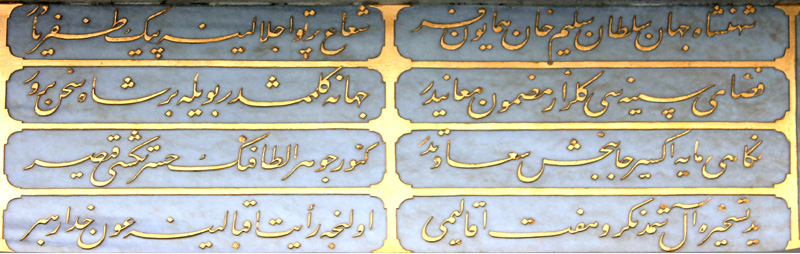 شهنشاه جهان سلطان سلیم خان همایون فر
شعاع پرتو اجلالینه پیک ظفر یاور
فضای سینه سی کلزار مضمون معانیدر
جهانه کلممشدر بویله بر شاه سخن پرور
نکاهی مایه اکسیر جانبخش سعادتدر
کنوز جوهر الطافنک حسرتکشی قیصر
ید تسخیره آل شمدنکرو هفت اقالیمی
اولنجه رأیت اقبالینه عون خدا رهبر